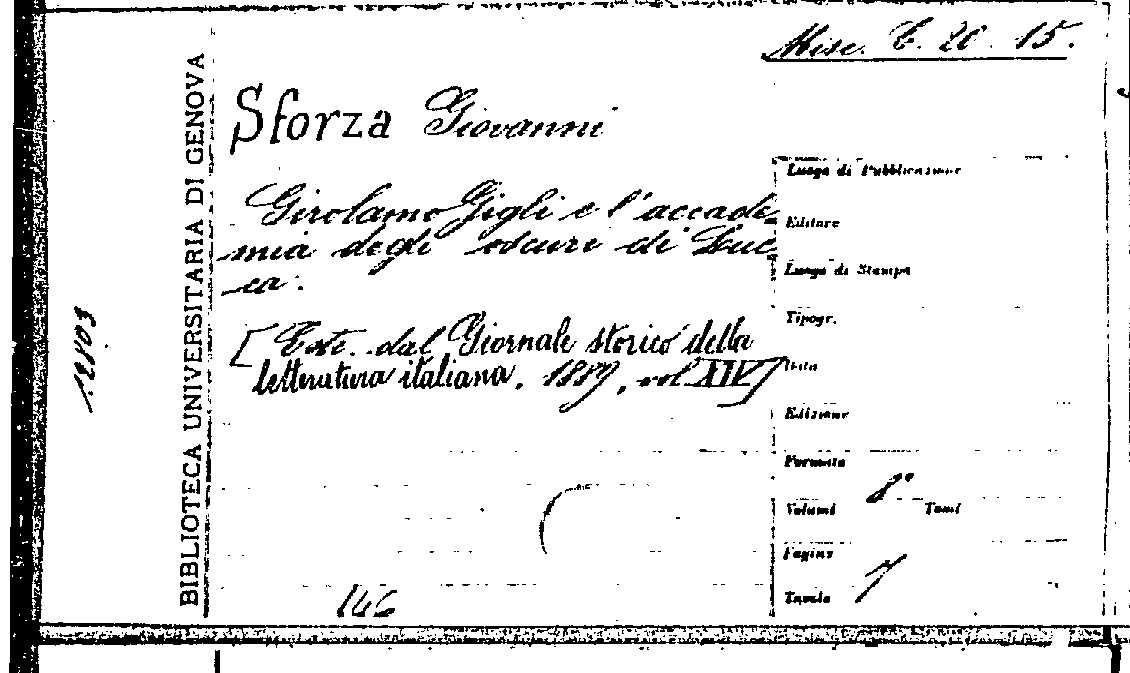 Misc. C. 20. 15.
Sforza Giovanni
Girolamo Gigli e l'accade-
mia degli oscuri di Luc-
ca.
[Estr. dal Giornale storico della
letteratura italiana, 1889, vol XIV]
Luogo di Pubblicazione
Editore
Luogo di Stampa
Tipogr.
Data
Edizione
Formato
8º
Volumi Tomi
Pagine
7
Tavole
146
BIBLIOTECA UNIVERSITARIA DI GENOVA